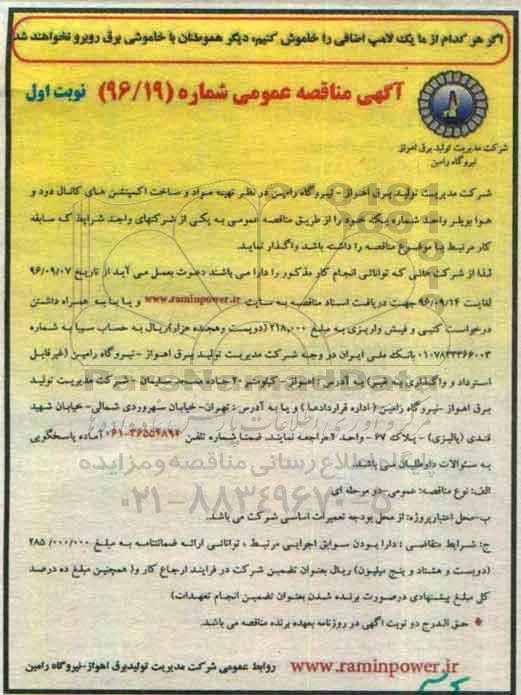 اگر هر کدام از ما یک لامپ اضافی را خاموش کنیم، دیگر هموطنان با خاموشی برق روبرو نخواهند شد
آگهی مناقصه عمومی شماره (۹۶/۱۹) نوبت اول
شرکت مدیریت تولید برق اهواز
نیروگاه رامین
شرکت مدیریت تولید برق اهواز - نیروگاه رامین در نظر تهیه مواد و ساخت اکسپنشن های کانال دود و
هوا بویلر واحد شماره یک خود را از طریق مناقصه عمومی به یکی از شرکتهای واجد شرایط که سابقه
کار مرتبط با موضوع مناقصه را داشته باشد واگذار نماید.
لذا از شرکت هائی که توانائی انجام کار مذکور را دارا می باشند دعوت بعمل می آید از تاریخ ۹۶/۰۹/۰۷
لغایت ۹۶/۰۹/۱۴ جهت دریافت اسناد مناقصه به سایت www.raminpower.ir و یا با به همراه داشتن
درخواست کتبی و فیش واریزی به مبلغ ۲۱۸,۰۰۰ (دویست وهجده هزار)ریال به حساب سیبا به شماره
۰۱۰۷۸۳۳۳۶۶۰۰۳ بانک ملی ایران در وجه شرکت مدیریت تولید برق اهواز - نیروگاه رامین (غیرقابل
استرداد و واگذاری به غیر) به آدرس : اهواز - کیلومتر ۲۰ جاده مسجد سلیمان - شرکت مدیریت تولید
برق اهواز - نیروگاه رامین ( اداره قراردادها ) و یا به آدرس : تهران- خیابان سهروردی شمالی- خیابان شهید
قندی (پالیزی) - پلاک ۶۷ - واحد ۲ مراجعه نمایند. ضمنا شماره تلفن ۳۶۵۵۴۸۹۴-۰۶۱ آماده پاسخگویی
به سئوالات داوطلبان می باشند.
الف: نوع مناقصه: عمومی-دو مرحله ای
ب-محل اعتبار پروژه: از محل بودجه تعمیرات اساسی شرکت می باشد.
ج: شرایط متقاضی : دارا بودن سوابق اجرایی مرتبط ، توانائی ارائه ضمانتنامه به مبلغ ۲۸۵/۰۰۰/۰۰۰
(دویست و هشتاد و پنج میلیون) ریال بعنوان تضمین شرکت در فرایند ارجاع کار و( همچنین مبلغ ده درصد
کل مبلغ پیشنهادی درصورت برنده شدن بعنوان تضمین انجام تعهدات)
حق الدرج دو نوبت آگهی در روزنامه بعهده برنده مناقصه می باشد.
www.raminpower.ir روابط عمومی شرکت مدیریت تولیدبرق اهواز-نیروگاه رامین
پایگاه اطلاع رسانی مناقصه و مزایده
۰۲۱-۸۸۳۴۹۶۷۰-۵